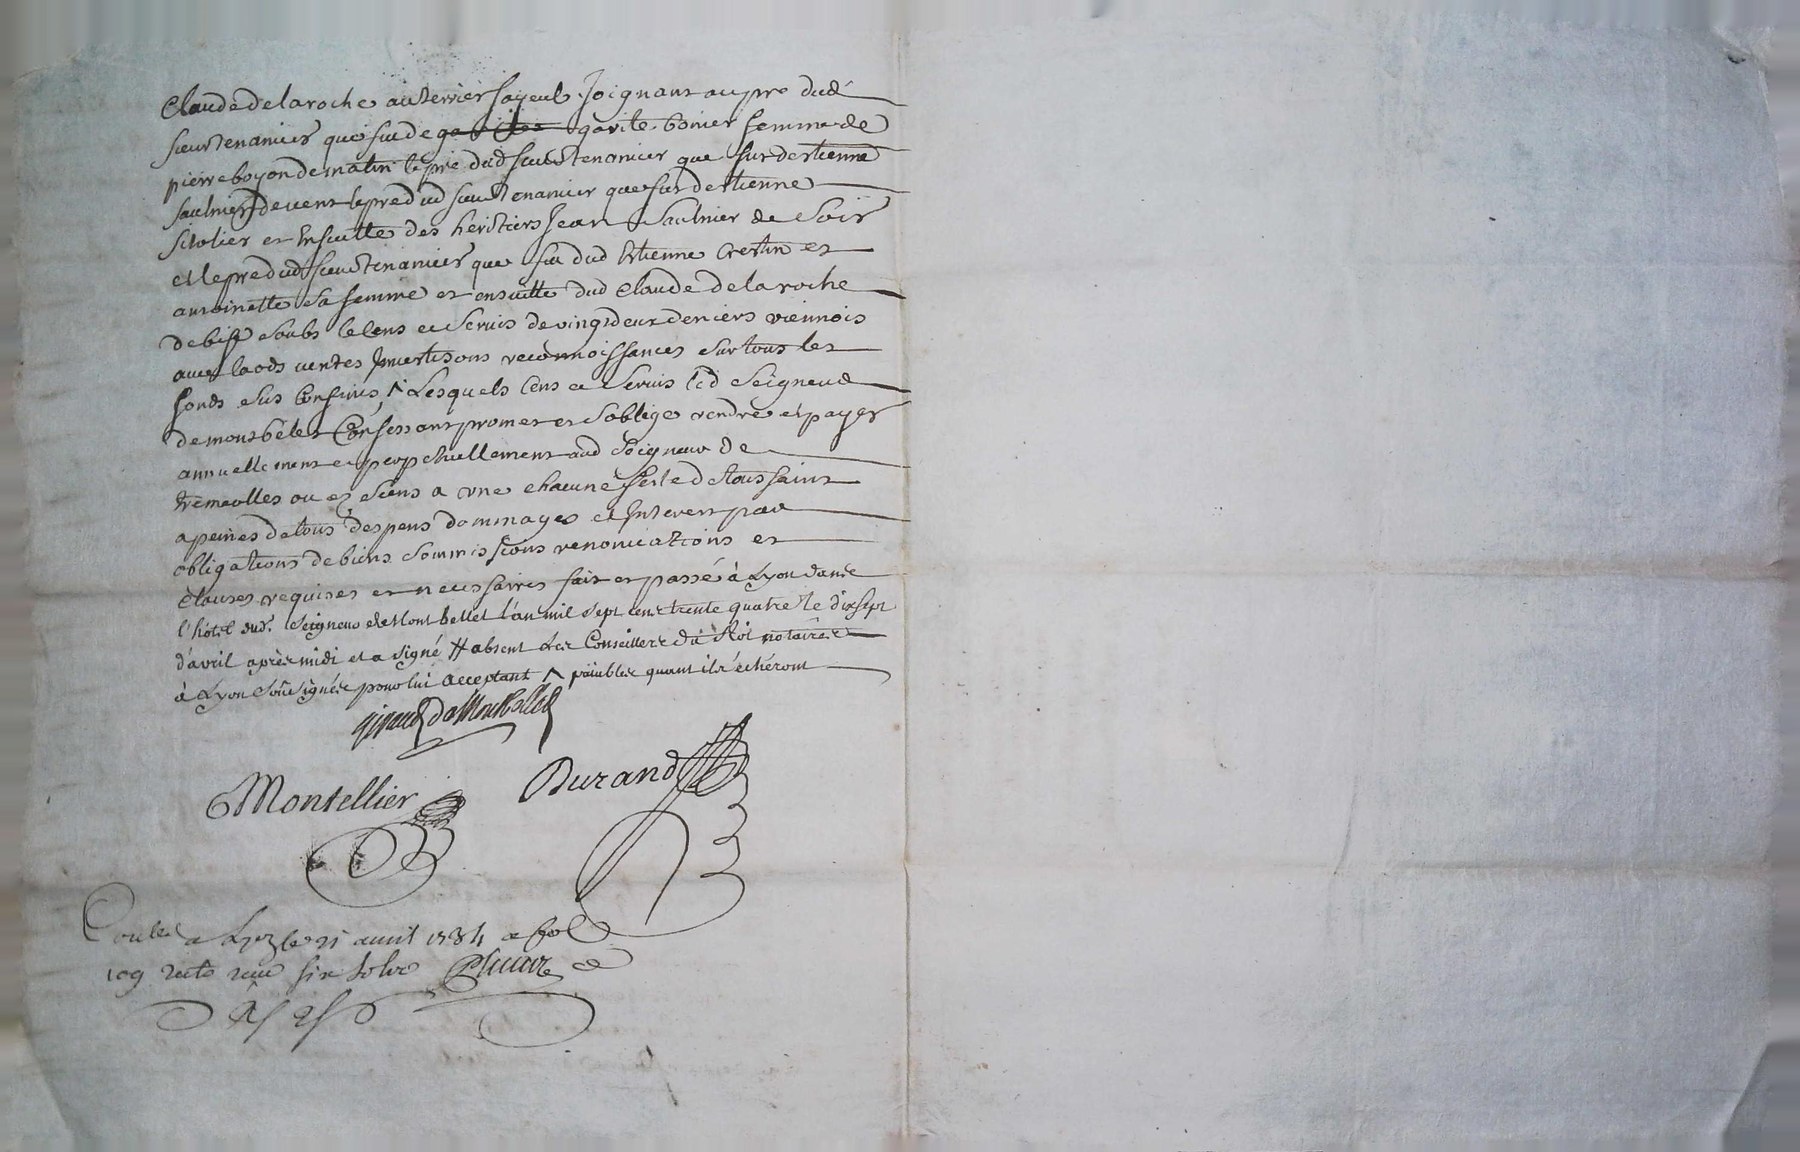 Claude delaroche au terrier sayeul Joignant au pre dud
sieur tenancier que fut de garite bonier femme de
pierre boyon de matin le pre dud sieur tenancier que fut d'estienne
saulnier de vent le pre dud sieur tenancier que fut destienne
et Ensuitte des heritiers Jean Saulnier de Soir
et le pre dud sieur tenancier que fut dud Estienne Crestin et
antoinette Sa femme et ensuitte dud Claude delaroche
de bise Soubs le Cens et Servis de vingt deux deniers viennois
avec laods ventes reconnoissances Sur tous les
fonds Sus Confines ^ Lesquels Cens et Servis led Seigneur
de montbelet Confessant promet et S'oblige rendre et payer
annuellement et perpetuellement aud Seigneur de
tremeolles ou es Siens a une chacune feste de toussaint
a peines de tous despens dommages et Interest par
obligations de biens Sommissions renonciations et
Clauses requises et necessaires fait et passé à Lyon dans
l'hôtel dud. Seigneur de Montbellet l'an mil Sept cent trente quatre le dixsept
d'avril après midi et a Signé # absent Les Conseillers du Roi notaires
à Lyon Soussignés pour lui acceptant ^ païables quant ils écheront
giraud de Montbellet
Montellier Durand
Controllé a Lyon le 21 avril 1734 a fol
109 recto receu six solz